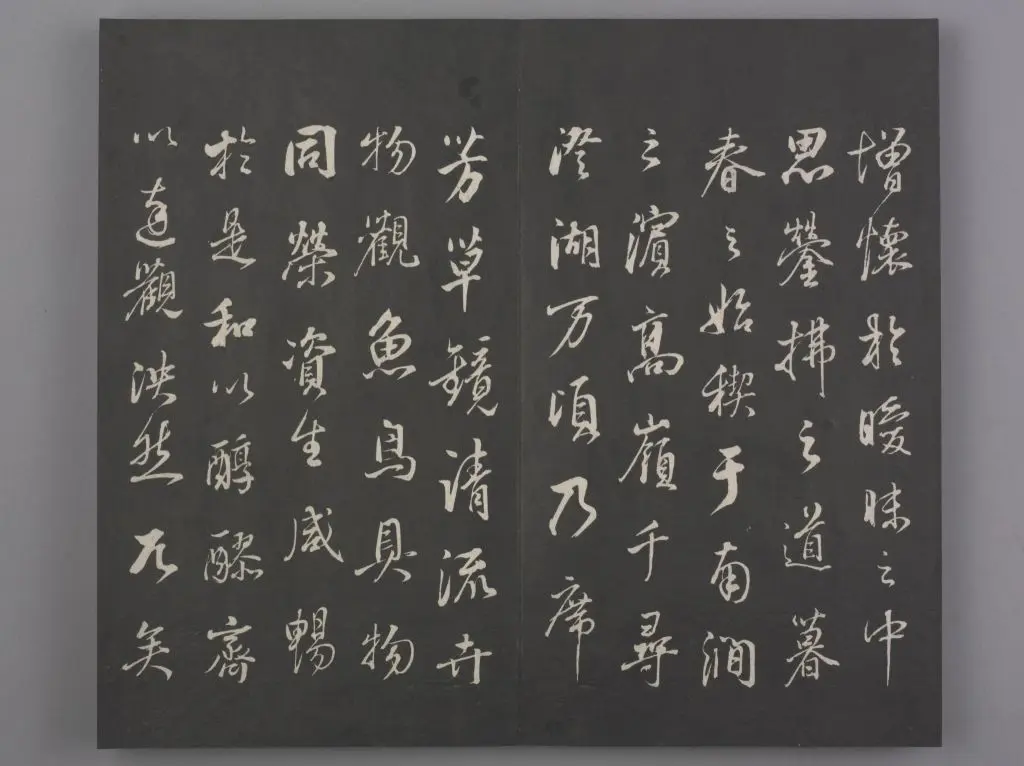 增懷於曖昧之中
思瑩拂之道暮
春之始禊于南澗
之濱高嶺千尋
澄湖万頃乃席
芳草鏡清流卉
物觀魚鳥具物
同榮資生咸暢
於是和以醇醪齊
以達觀泱然兀矣